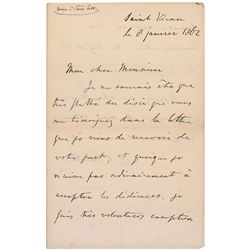 Saint Viran
le 8 janvier 1862
Mon cher Monsieur
Je ne saurais être que
très flatté du désir que vous
me témoignez dans la lettre
que je viens de recevoir de
votre part, et quoique je
n'aime pas ordinairement à
accepter les dédicaces, je
fais très volontiers exception